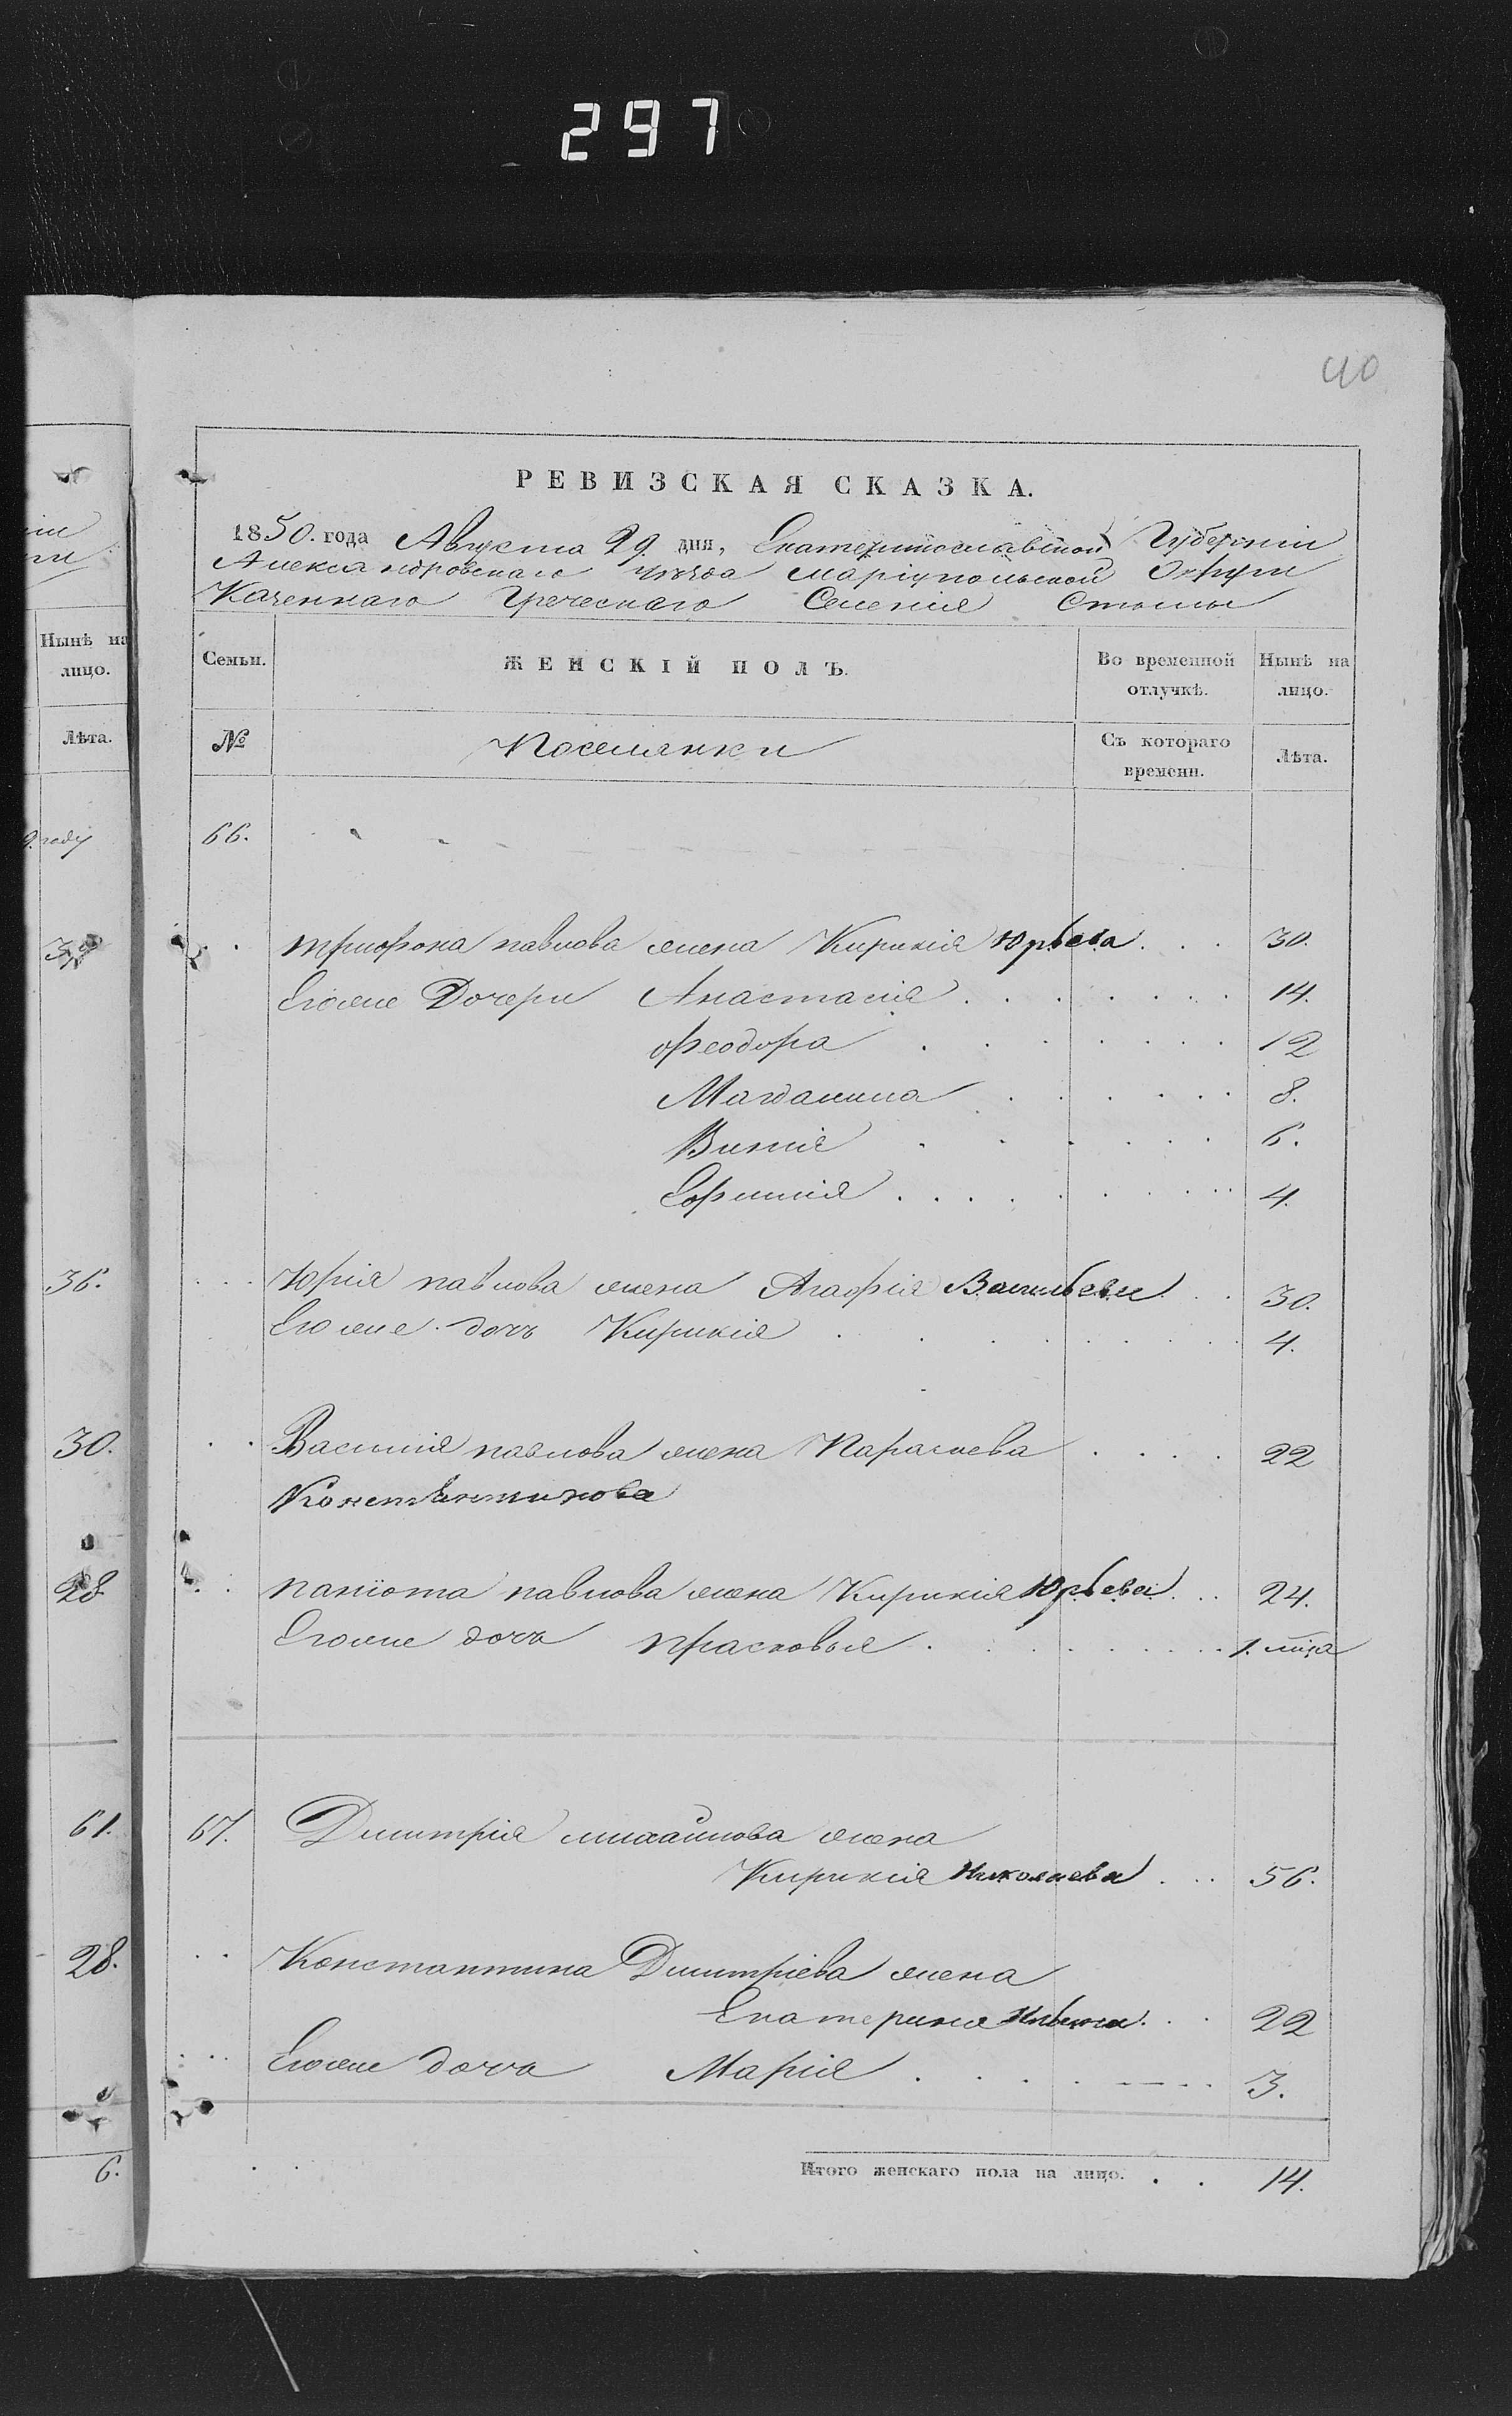 297
40
РЕВИЗСКАЯ СКАЗКА.
1850. года Августа 29. дня, Екатеринославской Губерніи
Александровскаго уѣзда Маріупольской Округи
Казеннаго Греческаго Селенія Стылы
Нынѣ на лицо.
Лѣта.
Семьи.
ЖЕНСКІЙ ПОЛЪ.
Во временной отлучкѣ.
Нынѣ на лицо.
№
Поселянки
Съ котораго времени.
Лѣта.
году
66.
трифона павлова жена Кирикія Юрьева . . . 30.
Егоже Дочери Анастасія . . . . . . . 14.
феодора . . . . . . . 12
Магдалина . . . . . . 8.
Викія . . . . . . 6.
Софилія . . . . . . . . . 4.
36.
. . . Юрія павлова жена Агафія Васильева . . 30.
Егоже дочь Кирикія . . . . . . . . 4.
30.
. . Василія павлова жена Параскева . . . . 22
Константинова
28
. . панiота павлова жена Кирикія Юрьева . . . 24.
Егоже дочь прасковья . . . . . . . . 1. мца
61.
67. Дмитрія михайлова жена
Кирикія Николаева . . . 56.
28.
. . Константина Дмитріева жена
Екатерина . . . 22
. . . Егоже дочь Марія . . . . . . . 3.
6.
Итого женскаго пола на лицо. . . 14.